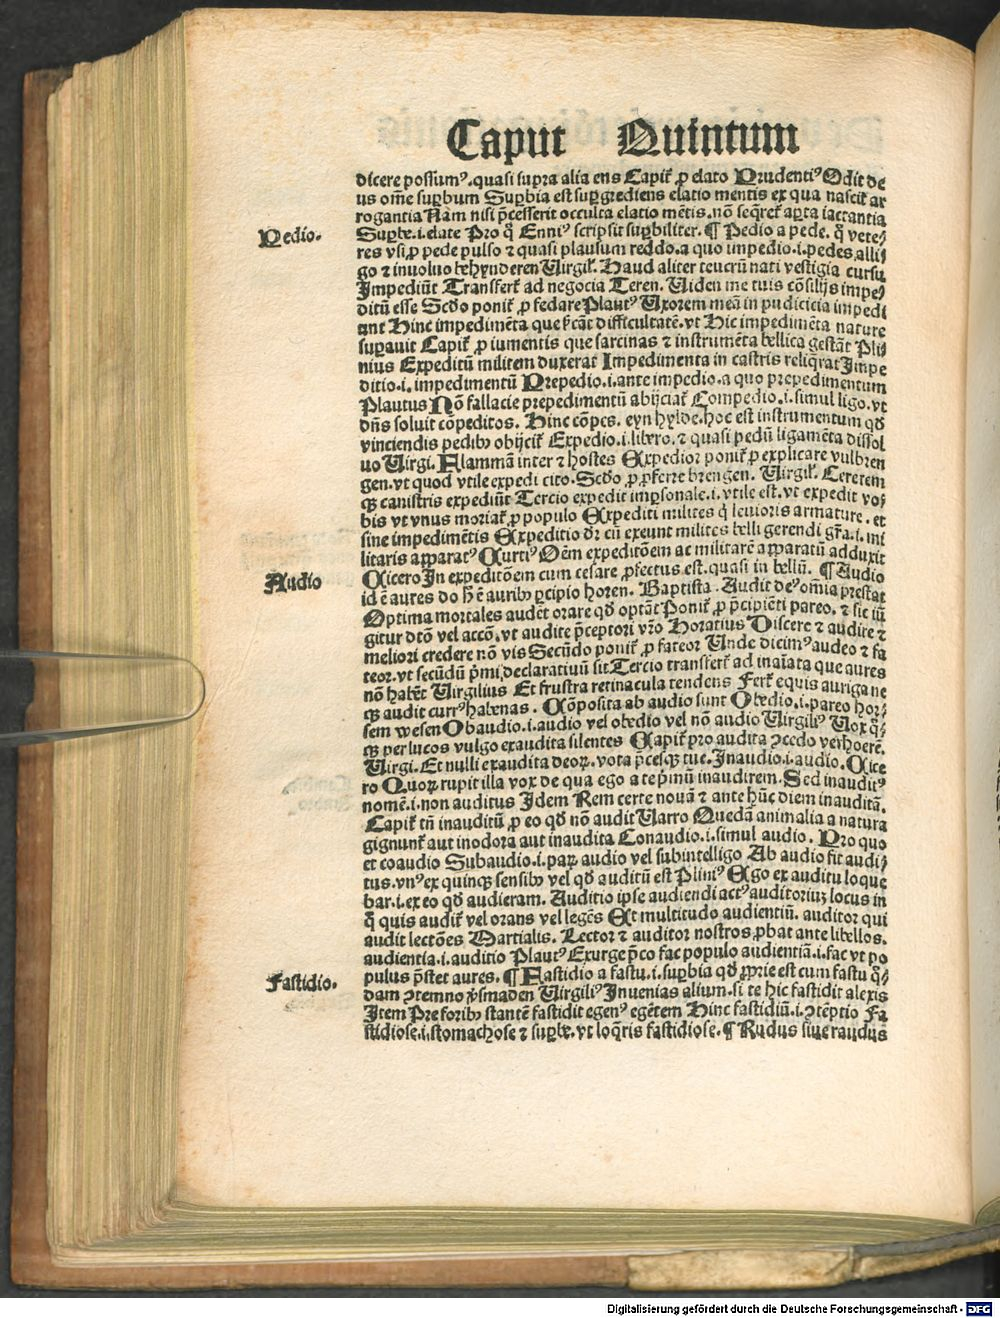 Caput Quintum
dicere possumꝰ. quasi supra alia ens Capit̄ ꝓ elato Prudentiꝰ Odit de
us om̄e suꝑbum Suꝑbia est suꝑgrediens elatio mentis ex qua nascit̄ ar
rogantia Nam nisi p̄cesserit occulta elatio mētis. nō seq̄ret̄ aꝑta iactantia
Suꝑbe. i. elate Pro q̄ Enniꝰ scripsit suꝑbiliter. ¶ Pedio a pede. q̄ vete⸗
Pedio.
res vsi ꝓ pede pulso ⁊ quasi plausum reddo. a quo impedio. i. pedes alli⸗
go ⁊ inuoluo behynderen Uirgil̄. Haud aliter teucrū nati vestigia cursu
Impediūt Transfert̄ ad negocia Teren. Uiden me tuis cōsilijs impe⸗
ditū esse Scd̄o ponit̄ ꝓ fedare Plautꝰ Uxorem meā in pudicicia impedi
ant Hinc impedimēta que sc̄ant difficultatē. vt Hic impedimēta nature
suꝑauit Capit̄ ꝓ iumentis que sarcinas ⁊ instrumēta bellica gestāt Pli
nius Expeditū militem duxerat Impedimenta in castris reliq̄rat Impe
ditio. i. impedimentū Prepedio. i. ante impedio. a quo prepedimentum
Plautus Nō fallacie prepedimentū abijciat̄ Compedio. i. simul ligo. vt
dn̄s soluit cōpeditos. Hinc cōpes. eyn hylde. hoc est instrumentum qd̄
vinciendis pedibꝰ obijcit̄ Expedio. i. libero. ⁊ quasi pedū ligamēta dissol
uo Uirgi. Flammā inter ⁊ hostes Expedior ponit̄ ꝓ explicare vulbren
gen. vt quod vtile expedi cito. Scd̄o ꝓ ꝓferre brengen. Uirgil̄. Cererem
qꝫ canistris expediūt Tercio expedit imꝑsonale. i. vtile est. vt expedit vo⸗
bis vt vnus moriat̄ ꝓ populo Expediti milites q̄ leuioris armature. et
sine impedimētis Expeditio dr̄ cū exeunt milites belli gerendi gr̄a. i. mi
litaris apparatꝰ Curtiꝰ Oēm expeditōem ac militarē apparatū adduxit
Cicero In expeditōem cum cesare ꝓfectus est. quasi in bellū. ¶ Audio
Audio
id ē aures do h̄ ē auribꝰ ꝑcipio horen. Baptista. Audit deꝰ om̄ia prestat
Optima mortales audēt orare qd̄ optāt Ponit̄ ꝓ p̄cipiēti pareo. ⁊ sic iū
gitur dtō̄ vel accō̄. vt audite p̄ceptori vr̄o Horatius Discere ⁊ audire ⁊
meliori credere nō vis Secūdo ponit̄ ꝓ fateor Unde dicimꝰ audeo ⁊ fa
teor. vt secūdū p̄mi declaratiuū sit Tercio transfert̄ ad inaīata que aures
nō habēt Uirgilius Et frustra retinacula tendens Fert̄ equis auriga ne
qꝫ audit currꝰ habenas. Cōposita ab audio sunt Obedio. i. pareo hor⸗
sem wesen Obaudio. i. audio vel obedio vel nō audio Uirgiliꝰ Uox q̄⸗
qꝫ per lucos vulgo exaudita silentes Capit̄ pro audita ꝯcedo verhoerē.
Uirgi. Et nulli exaudita deoꝝ. vota p̄cesqꝫ tue. Inaudio. i. audio. Cice
ro Quoꝝ rupit illa vox de qua ego a te p̄mū inaudirem. Sed inauditꝰ
nomē. i. non auditus Idem Rem certe nouā ⁊ ante hūc diem inauditā.
Capit̄ tn̄ inauditū ꝓ eo qd̄ nō audit Uarro Quedā animalia a natura
gignunt̄ aut inodora aut inaudita Conaudio. i. simul audio. Pro quo
et coaudio Subaudio. i. paꝝ audio vel subintelligo Ab audio fit audi⸗
tus. vnꝰ ex quinqꝫ sensibꝰ vel qd̄ auditū est Pliniꝰ Ego ex auditu loque
bar. i. ex eo qd̄ audieram. Auditio ipse audiendi actꝰ auditoriuꝫ locus in
q̄ quis audit̄ vel orans vel legēs Et multitudo audientiū. auditor qui
audit lectōes Martialis. Lector ⁊ auditor nostros ꝓbat ante libellos.
audientia. i. auditio Plautꝰ Exurge p̄co fac populo audientiā. i. fac vt po
pulus p̄stet aures. ¶ Fastidio a fastu. i. suꝑbia qd̄ ꝓprie est cum fastu q̄⸗
Fastidio.
dam ꝯtemno v̓smaden Uirgiliꝰ Inuenias alium. si te hic fastidit alexis
Item Pre foribꝰ stantē fastidit egenꝰ egētem Hinc fastidiū. i. ꝯtēptio Fa
stidiose. i. stomachose ⁊ suꝑbe. vt loq̄ris fastidiose. ¶ Rudus siue raudus
Digitalisierung gefördert durch die Deutsche Forschungsgemeinschaft - DFG